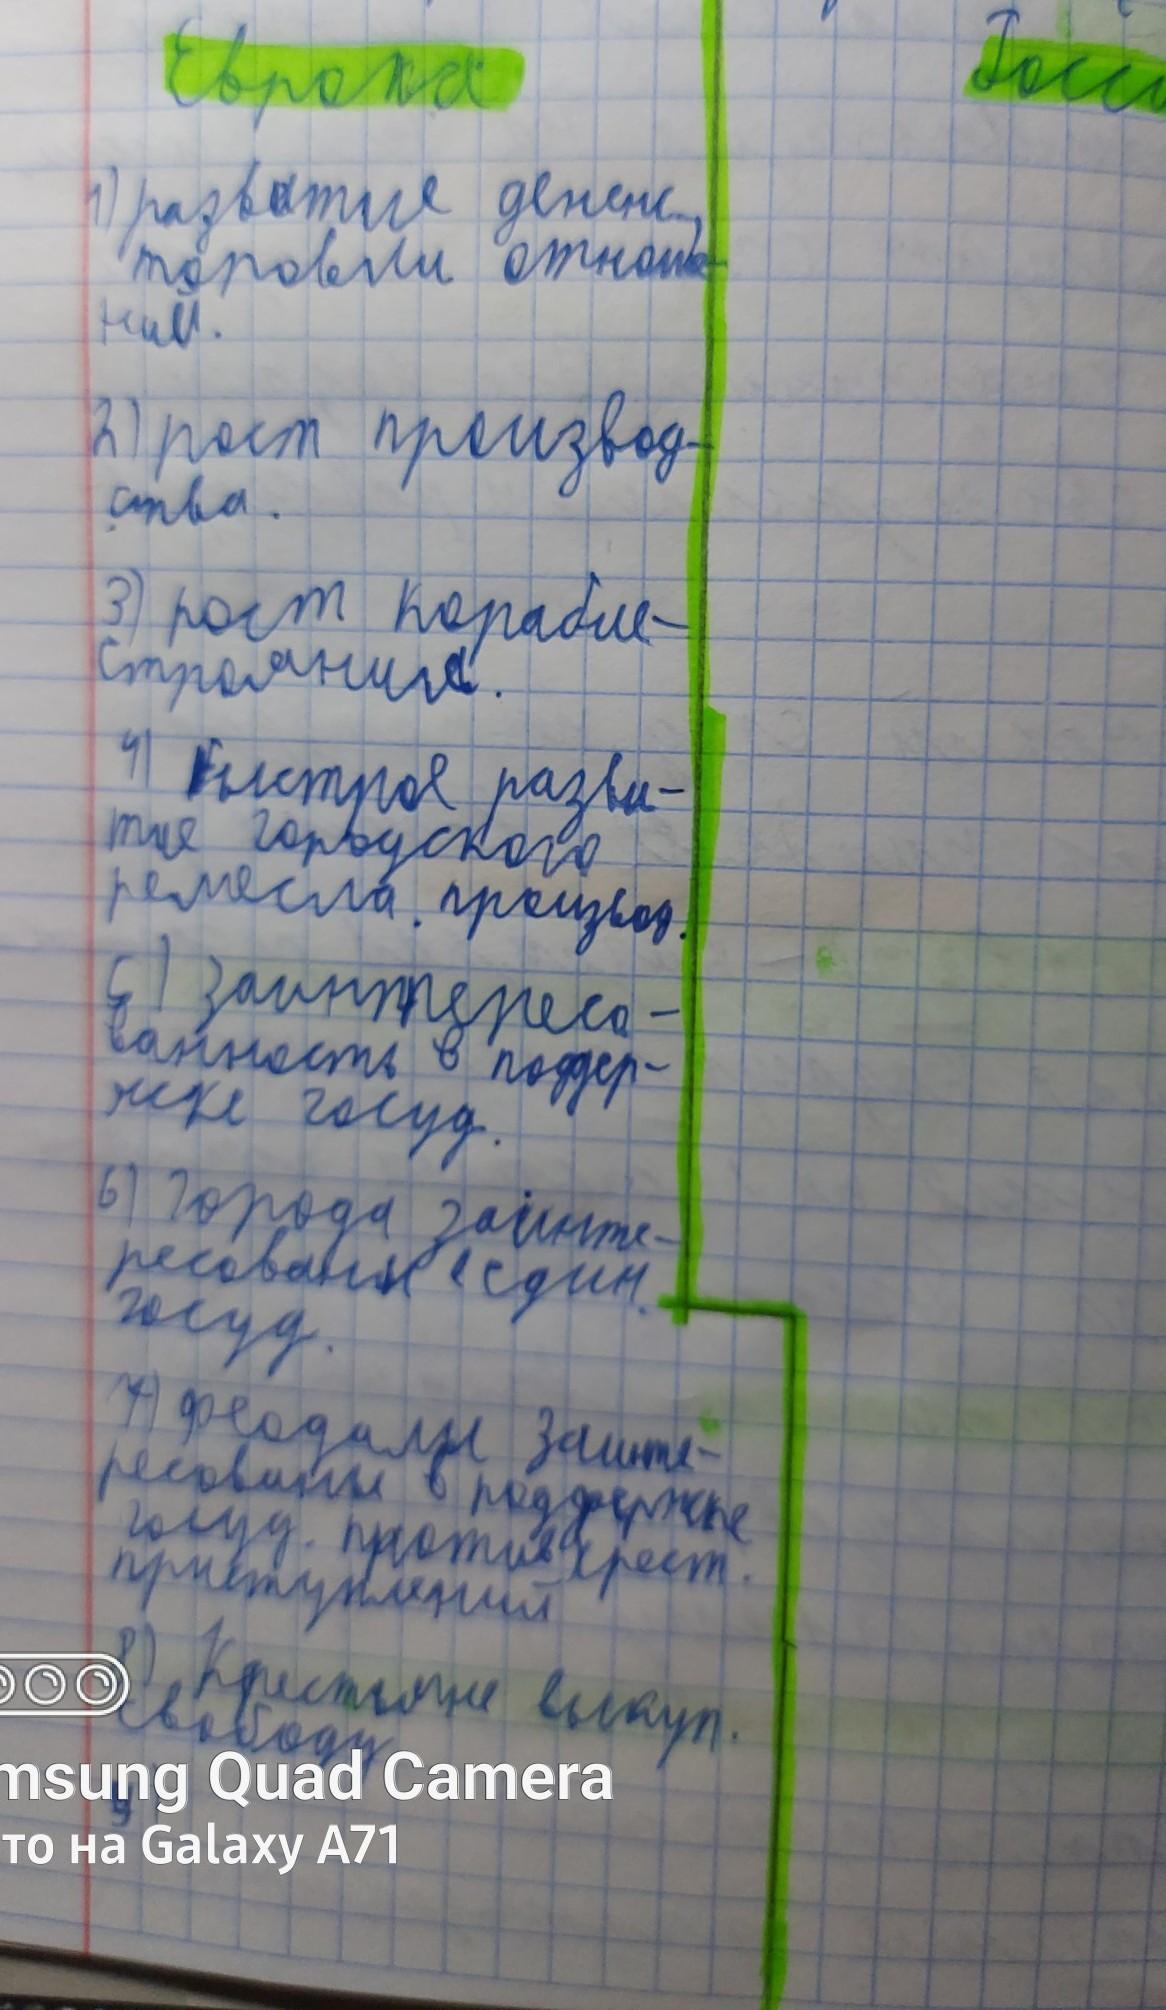 Европа
Росси
1) развитие денеж.,
торовли отноше-
ний.
2) рост производ-
ства.
3) рост корабле-
строяния.
4) Быстрое разви-
тие городского
ремесла. производ.
5) Заинтересо-
ванность в поддер-
жке госуд.
6) Города заинте-
ресованы един.
госуд.
7) Феодалы заинте-
ресованы в поддержке
госуд. против крест.
приступлений
8) Крестояне выкуп.
свободу
9)
msung Quad Camera
то на Galaxy A71